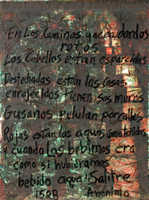 En Los Caminos yacen dardos
rotos
Los Cabellos están esparcidos
Destechadas están las casas
enrojecidos tienen sus muros
Gusanos pululan por calles
Rojas están las aguas
cuando las bebimos era
como si hubiéramos
bebido agua Salitre
1528 Anónimo